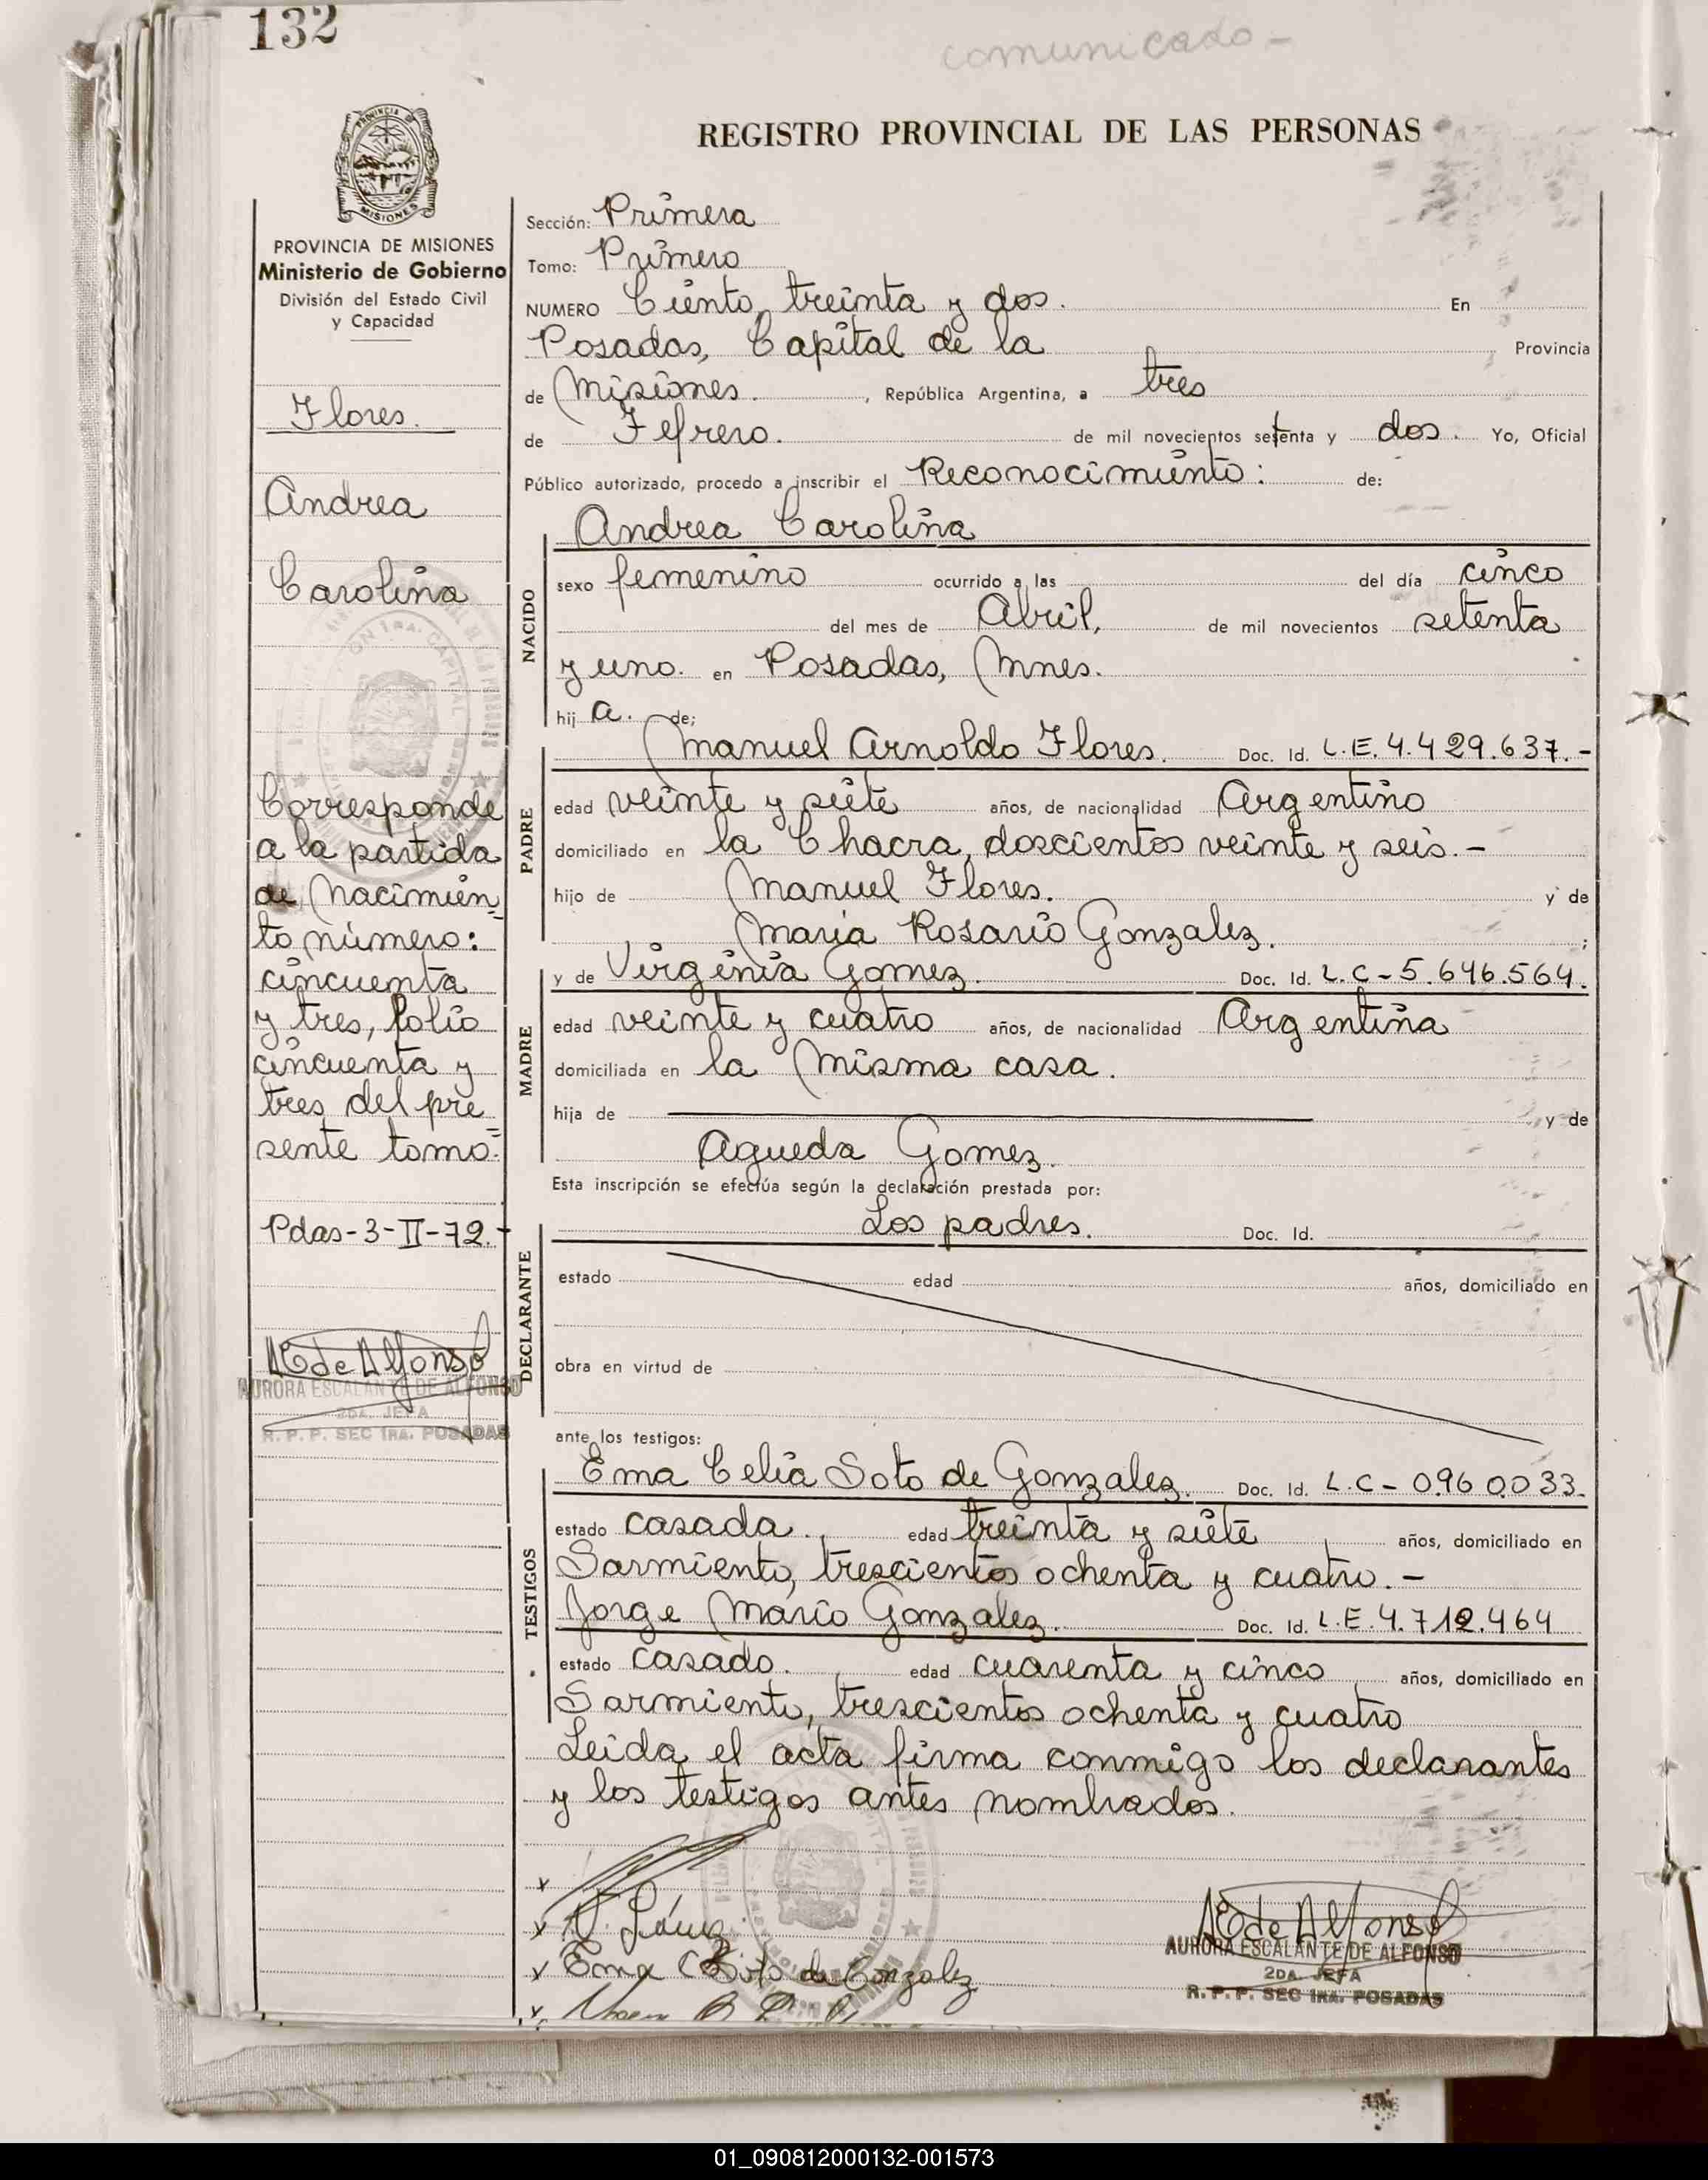 132
comunicado -
PROVINCIA DE
MISIONES
REGISTRO PROVINCIAL DE LAS PERSONAS
PROVINCIA DE MISIONES
Ministerio de Gobierno
División del Estado Civil
y Capacidad
Flores.
Andrea
Carolina
Corresponde
a la partida
de Nacimien
to número:
cincuenta
y tres, folio
cincuenta y
tres del pre
sente tomo.
Pdas-3-II-72.-
AE de Alfonso
AURORA ESCALANTE DE ALFONSO
2DA. JEFA
R. P. P. SEC 1RA. POSADAS
Sección: Primera
Tomo: Primero
NUMERO Ciento, treinta y dos. En
Posadas, Capital de la Provincia
de Misiones. , República Argentina, a tres
de Febrero. de mil novecientos setenta y dos. Yo, Oficial
Público autorizado, procedo a inscribir el Reconocimiento: de:
Andrea Carolina
NACIDO
sexo femenino ocurrido a las del día cinco
del mes de Abril, de mil novecientos setenta
y uno. en Posadas, Mnes.
hij a. de;
PADRE
Manuel Arnoldo Flores. Doc. Id. L.E. 4.429.637.-
edad veinte y siete años, de nacionalidad Argentino
domiciliado en la Chacra, doscientos veinte y seis.-
hijo de Manuel Flores. y de
Maria Rosario Gonzalez. ;
MADRE
y de Virginia Gomez. Doc. Id. L.C-5.646.564.
edad veinte y cuatro años, de nacionalidad Argentina
domiciliada en la Misma casa.
hija de y de
Agueda Gomez.
Esta inscripción se efectúa según la declaración prestada por:
Los padres. Doc. Id.
DECLARANTE
estado edad años, domiciliado en
obra en virtud de
ante los testigos:
TESTIGOS
Ema Celia Soto de Gonzalez. Doc. Id. L.C- 0.960.033.
estado casada. edad treinta y siete años, domiciliado en
Sarmiento, trescientos ochenta y cuatro.-
Jorge Mario Gonzalez. Doc. Id. L.E. 4.712.464
estado casado. edad cuarenta y cinco años, domiciliado en
Sarmiento, trescientos ochenta y cuatro
Leida el acta firma conmigo los declarantes
y los testigos antes nombrados.
Ema C Soto de Gonzalez
AE de Alfonso
AURORA ESCALANTE DE ALFONSO
2DA. JEFA
R. P. P. SEC 1RA. POSADAS
01_090812000132-001573